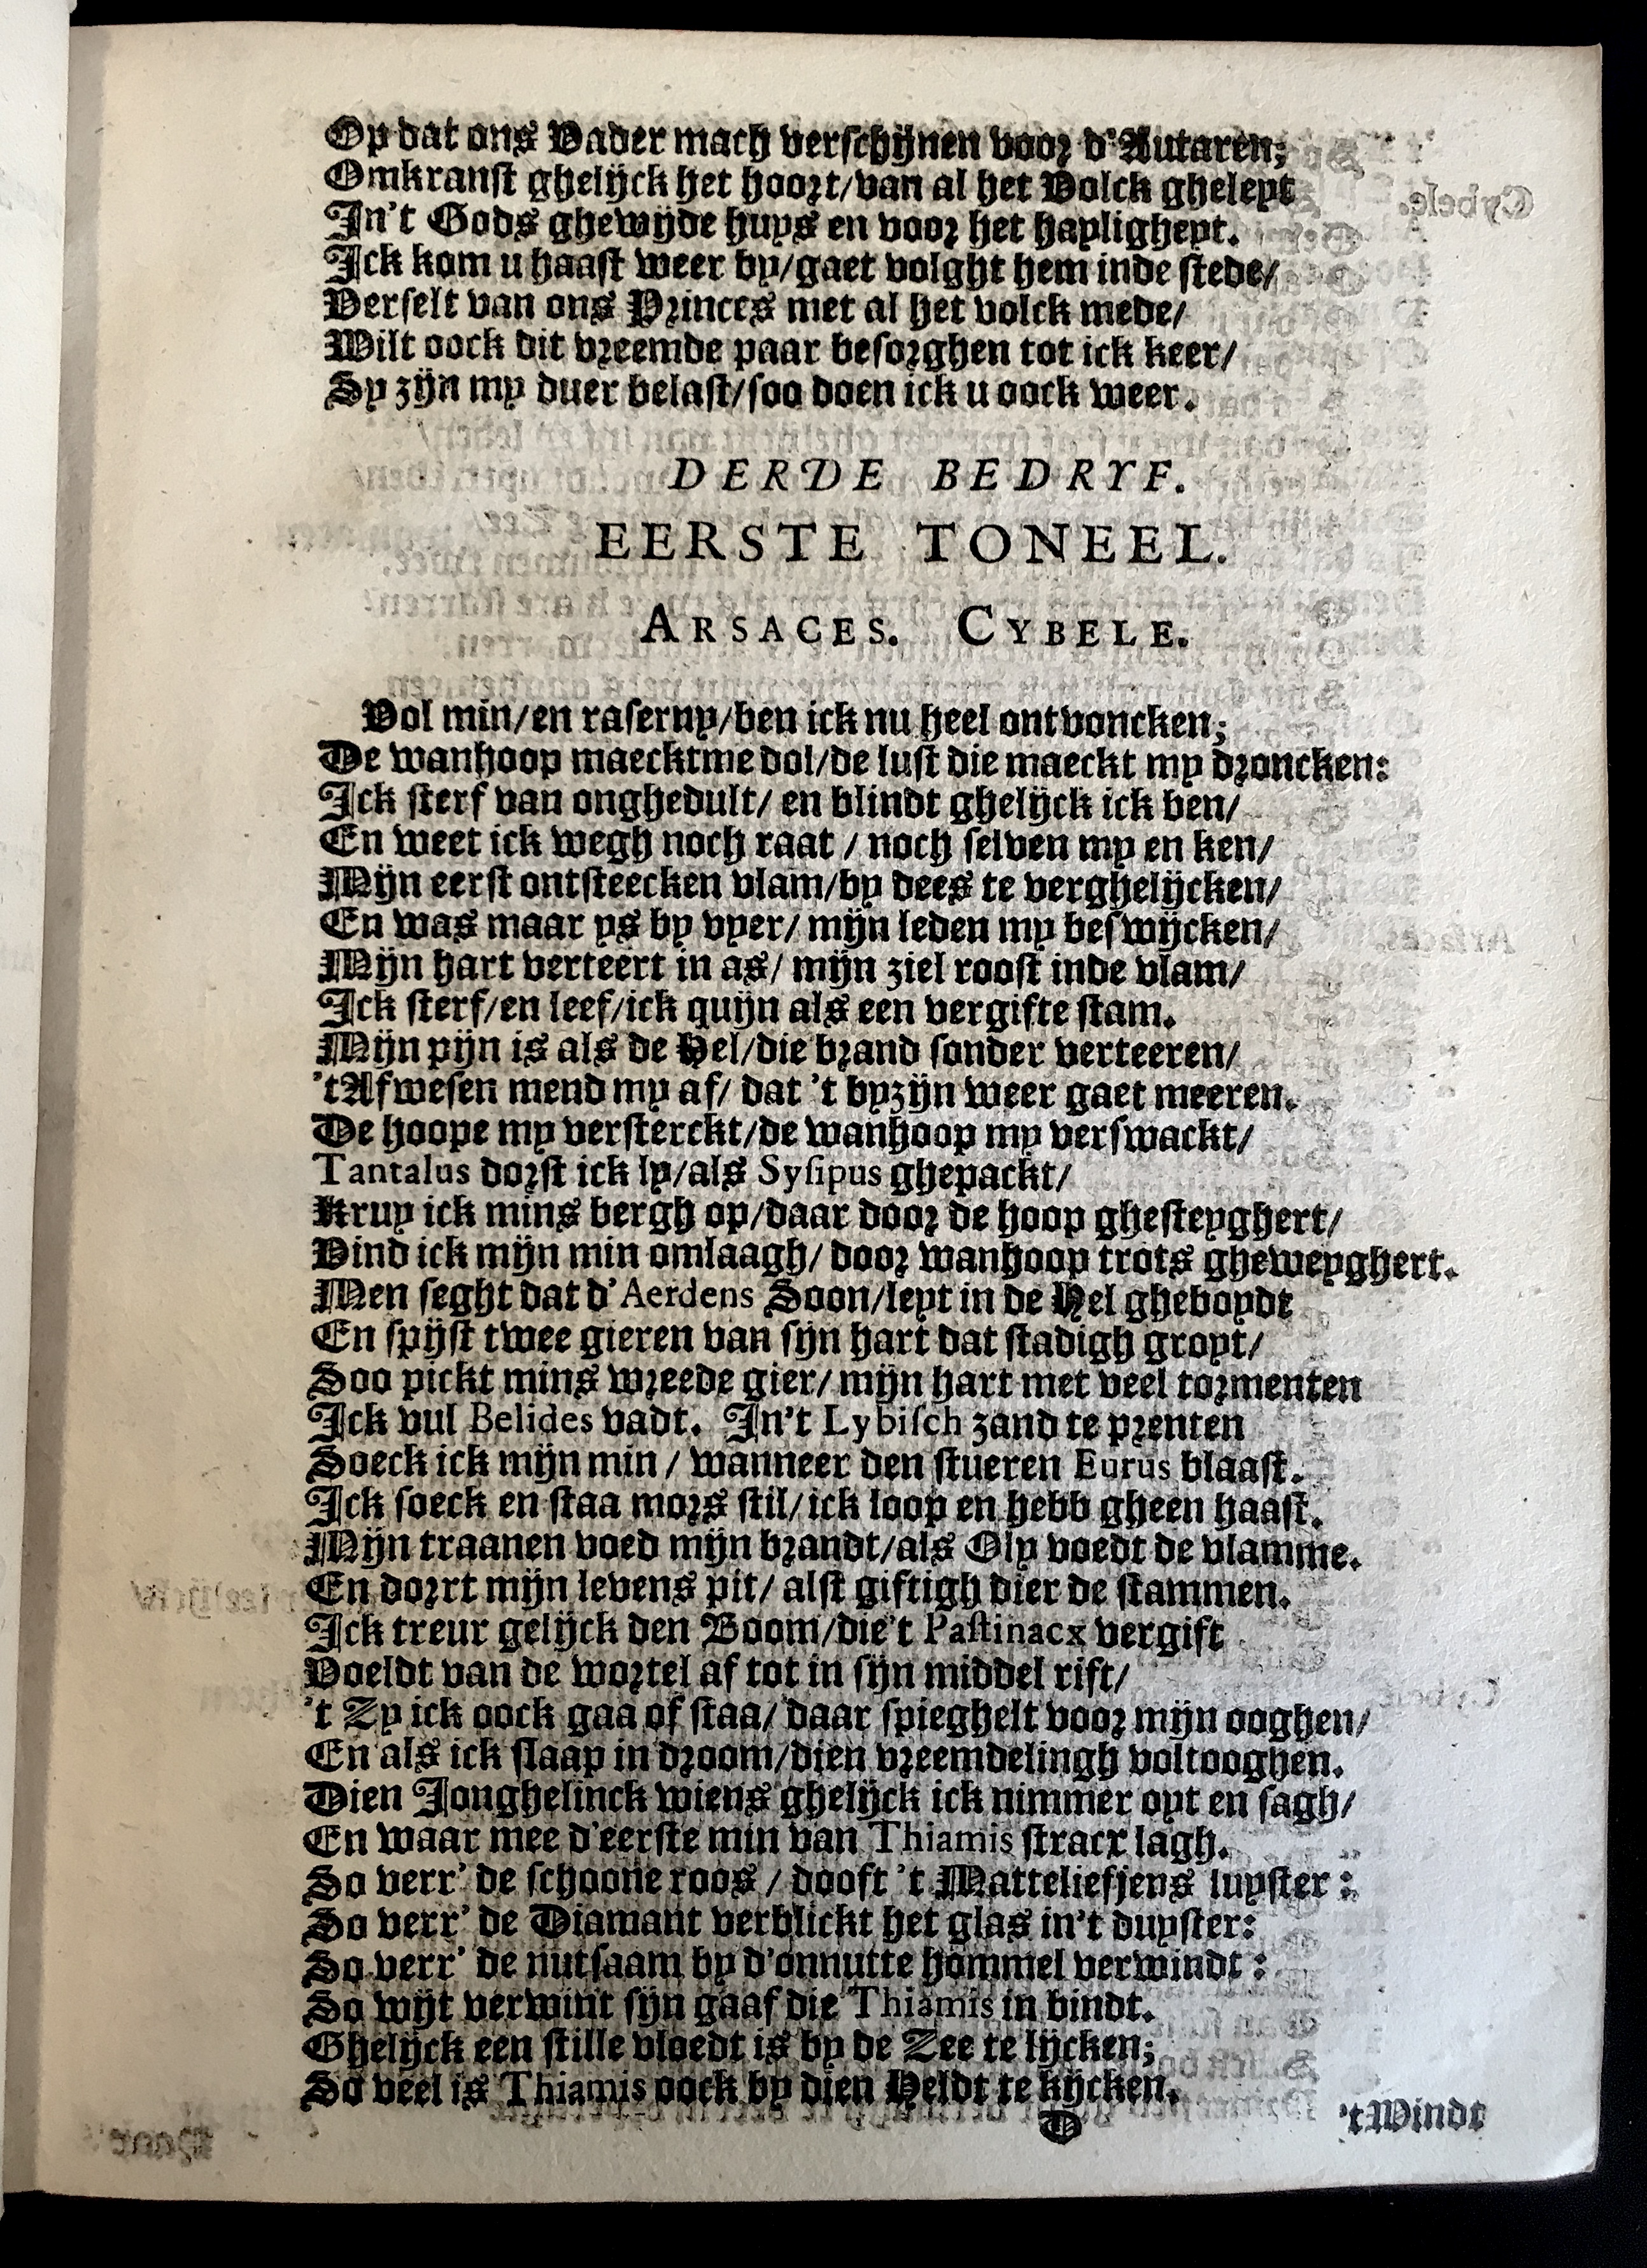 Op dat ons Vader mach verschijnen voor d'Autaren;
Omkranst ghelijck het hoort/van al het Volck gheleyt
In't Gods ghewijde huys en voor het hayligheyt.
Ick kom u haast weer by/gaet volght hem inde stede/
Verselt van ons Princes met al het volck mede/
Wilt oock dit vreemde paar besorghen tot ick keer/
Sy zijn my duer belast/soo doen ick u oock weer.
DERDE BEDRYF.
EERSTE TONEEL.
ARSACES. CYBELE.
Vol min/en raserny/ben ick nu heel ontvoncken;
De wanhoop maecktme dol/de lust die maeckt my droncken:
Ick sterf van onghedult/ en blindt ghelijck ick ben/
En weet ick wegh noch raat / noch selven my en ken/
Mijn eerst ontsteecken vlam/by dees te verghelijcken/
En was maar ys by vyer/ mijn leden my beswijcken/
Mijn hart verteert in as/ mijn ziel roost inde vlam/
Ick sterf/en leef/ick quijn als een vergifte stam.
Mijn pijn is als de Hel/die brand sonder verteeren/
'tAfwesen mend my af/ dat 't byzijn weer gaet meeren.
De hoope my versterckt/de wanhoop my verswackt/
Tantalus dorst ick ly/als Sysipus ghepackt/
Kruy ick mins bergh op/daar door de hoop ghesteyghert/
Vind ick mijn min omlaagh/ door wanhoop trots gheweyghert.
Men seght dat d'Aerdens Soon/leyt in de Hel gheboydt
En spijst twee gieren van sijn hart dat stadigh groyt/
Soo pickt mins wreede gier/ mijn hart met veel tormenten
Ick vul Belides vadt. In't Lybisch zand te prenten
Soeck ick mijn min / wanneer den stueren Eurus blaast.
Ick soeck en staa mors stil/ick loop en hebb gheen haast.
Mijn traanen voed mijn brandt/als Oly voedt de vlamme.
En dorrt mijn levens pit/ alst giftigh dier de stammen.
Ick treur gelijck den Boom/die't Pastinacx vergift
Voeldt van de wortel af tot in sijn middel rift/
't Zy ick oock gaa of staa/ daar spieghelt voor mijn ooghen/
En als ick slaap in droom/dien vreemdelingh voltooghen.
Dien Jonghelinck wiens ghelijck ick nimmer oyt en sagh/
En waar mee d'eerste min van Thiamis stracx lagh.
So verr' de schoone roos / dooft 't Matteliefjens luyster:
So verr' de Diamant verblickt het glas in't duyster:
So verr' de nutsaam by d'onnutte hommel verwindt:
So wijt verwint sijn gaaf die Thiamis in bindt.
Ghelijck een stille vloedt is by de Zee te lijcken;
So veel is Thiamis oock by dien Heldt te kijcken.
D
'tWindt